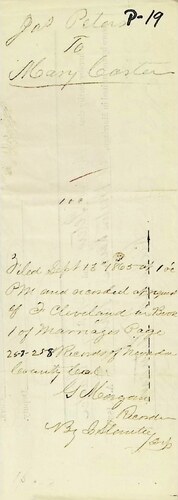 P-19
Jas Peters
To
Mary Carter
Filed Sept 13th 1865 at 1 oc
PM and recorded at request
of F Cleveland in Book
1 of Marriages Page
257-258 Records of Nevada
County Cal
G Morgan
Recorder
By
Dep